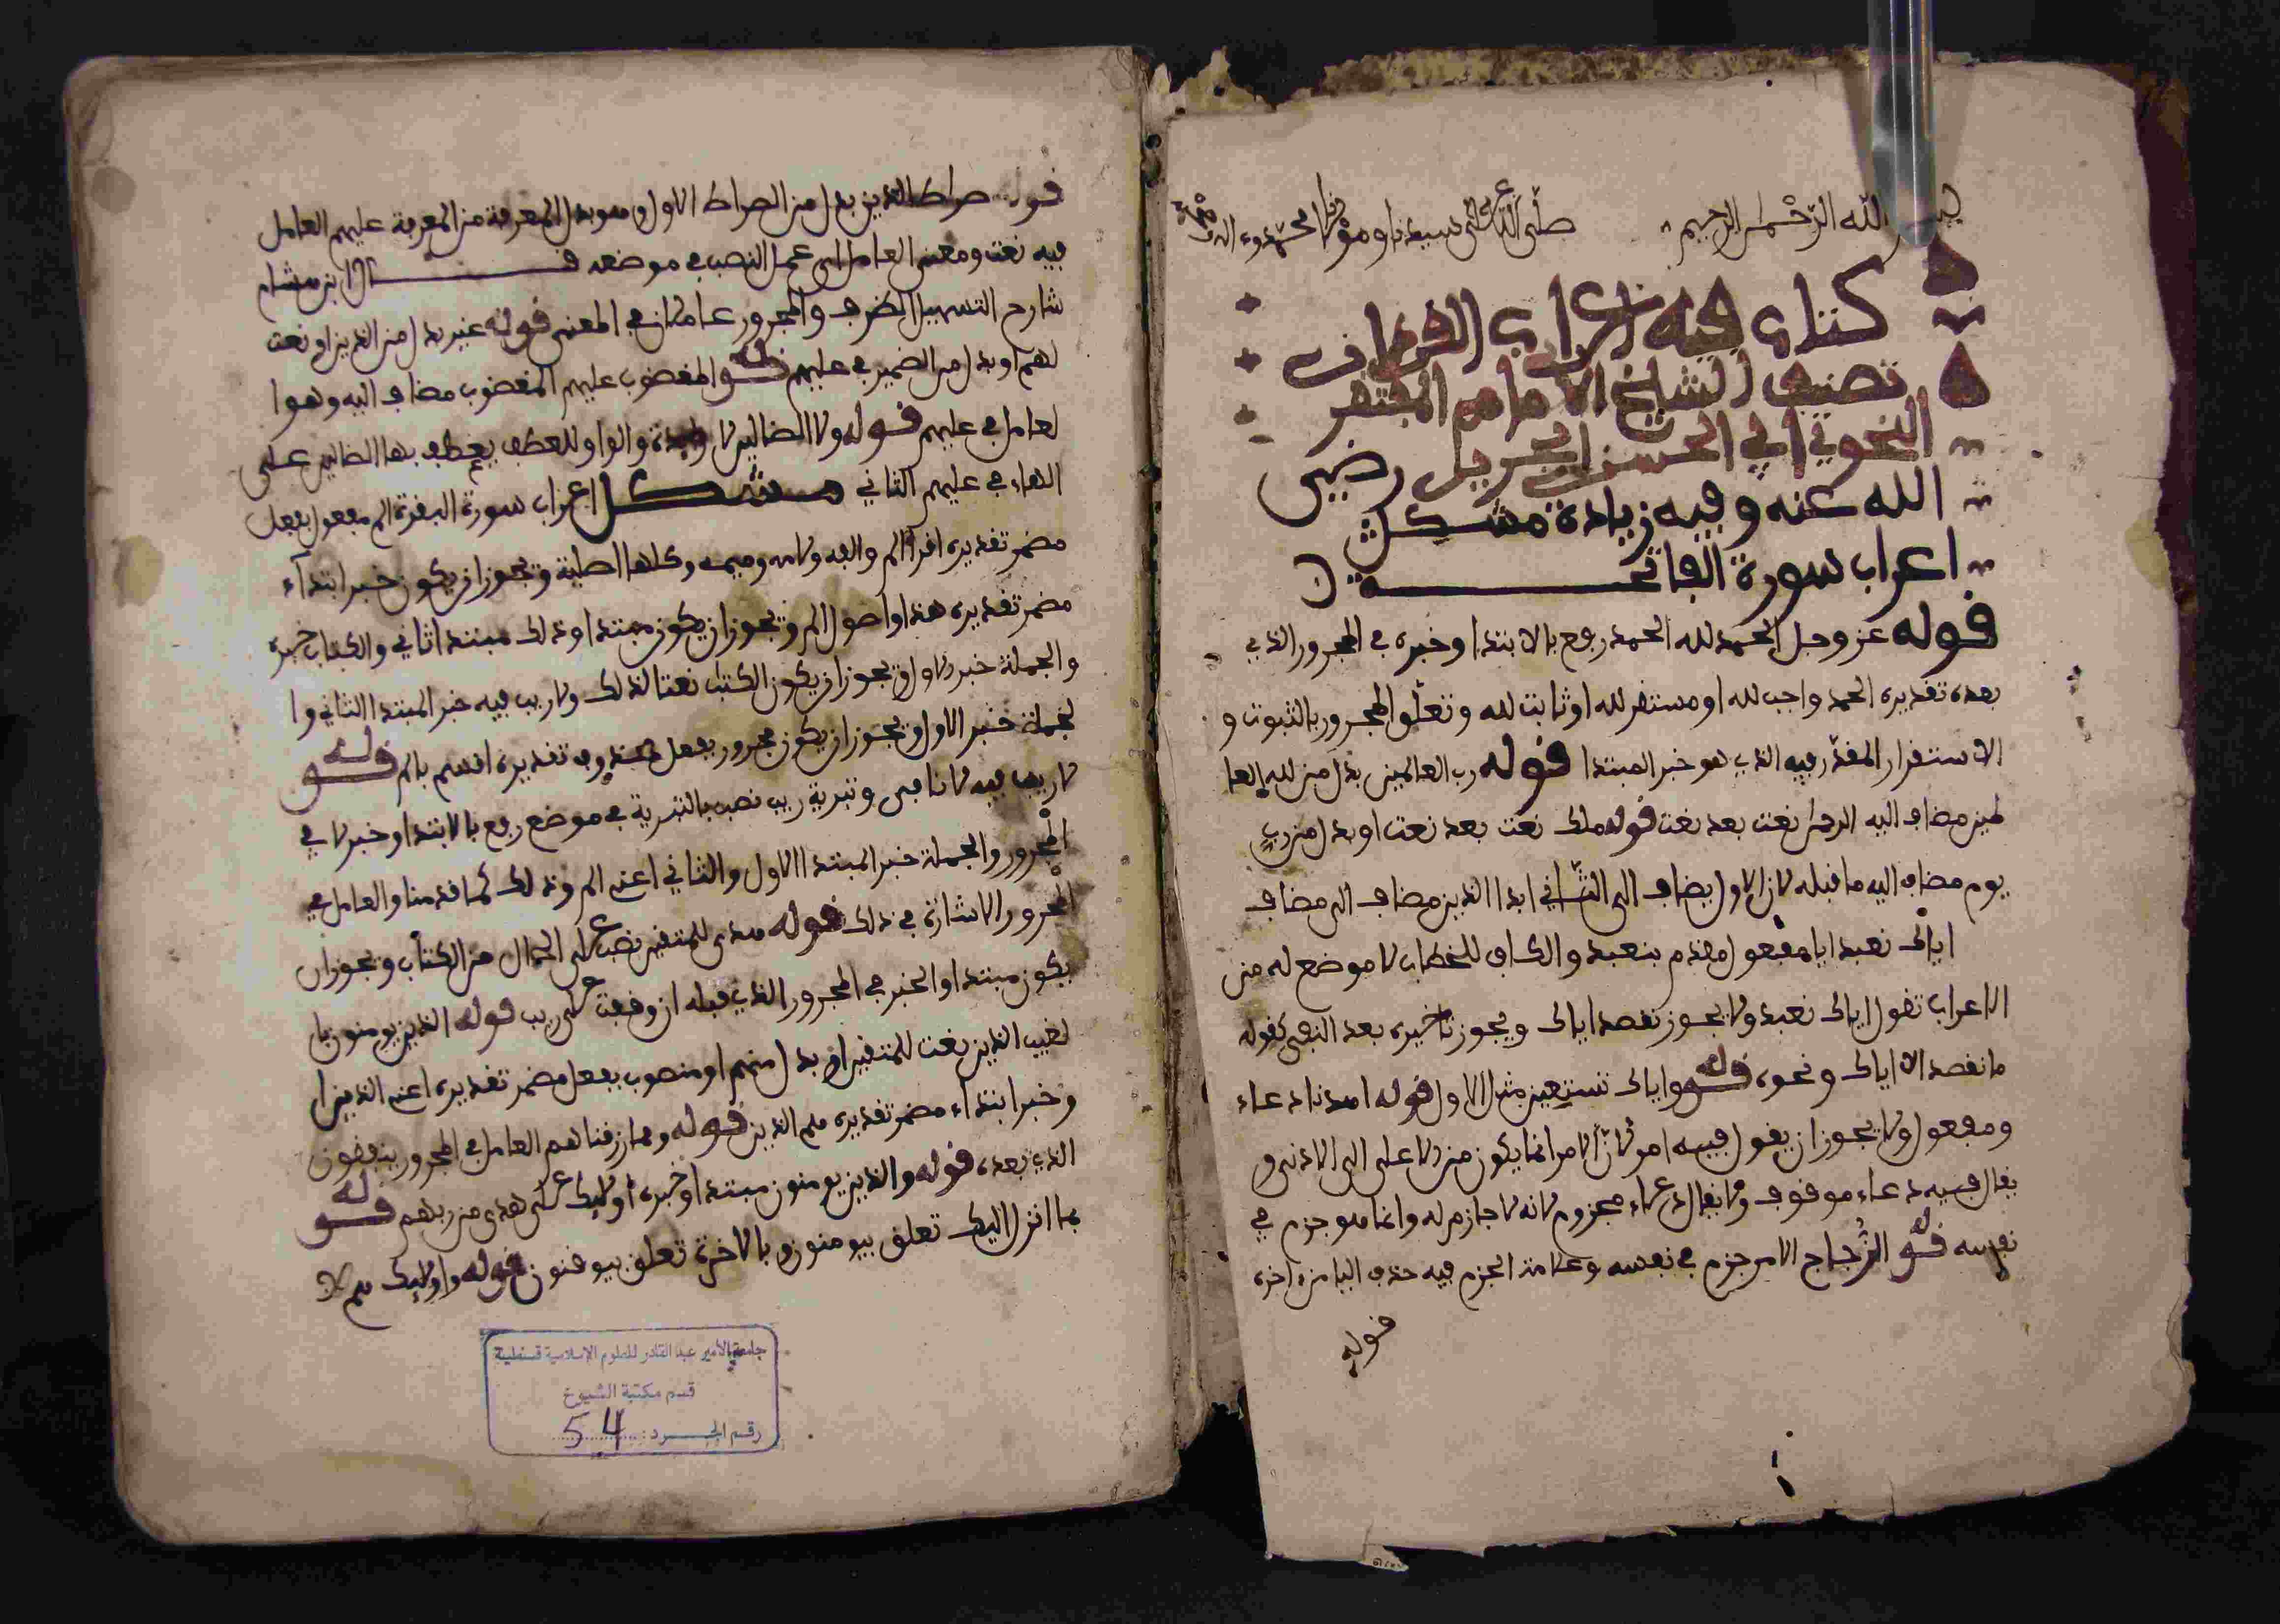 بسم الله الرحمن الرحيم صلى الله على سيدنا ومولانا محمد وءاله وصحبه
كتاب فيه اعراب القرءان
تصنيف الشيخ الامام
النحوي ابي الحسن رضي
الله عنه وفيه زيادة مشكل
اعراب سورة الفاتحة
قوله عز وجل الحمد لله الحمد رفع بالابتدا وخبره في المجرور الذي
بعده تقديره الحمد واجب لله او مستقر لله او ثابت لله وتعلق المجرور بالثبوت و
الاستقرار المقدر فيه الذي هو خبر المبتدا قوله رب العالمين بدل من لله العا
لمين مضاف اليه الرحمن نعت بعد نعت قوله ملك نعت بعد نعت او بدل من رب
يوم مضاف اليه ما قبله لان الاول يضاف الى الثاني ابدا الدين مضاف الى مضاف
اياك نعبد ايا مفعول مقدم بنعبد والكاف للخطاب لا موضع له من
الاعراب تقول اياك نعبد ولا يجوز نقصد اياك ويجوز تاخيره بعد النفي كقوله
ما نقصد الا اياك ونحوه قوله واياك نستعين مثل الاول قوله اهدنا دعاء
ومفعول ولا يجوز ان يقول فيه امر لان الامر انما يكون من الاعلى الى الادنى و
يقال فيه دعاء موقوف ولا يقال دعاء مجزوم لانه لا جازم له وانما هو جزم في
نفسه قوله الزجاج الامر جزم في نفسه وعلامة الجزم فيه حذف اليا من اخره
قوله
قوله صراط الذين بدل من الصراط الاول وهو بدل المعرفة من المعرفة عليهم العامل
فيه نعت ومعنى العامل اي عمل النصب في موضعه قال ابن هشام
شارح التسهيل الظرف والمجرور عاملان في المعنى قوله غير بدل من الذين او نعت
لهم او بدل من الضمير في عليهم قوله المغضوب عليهم المغضوب مضاف اليه وهو ا
لعامل في عليهم قوله ولا الضالين لا زايدة والواو للعطف يعطف بها الضالين على
الهاء في عليهم الثاني مشكل اعراب سورة البقرة الم مفعول بفعل
مضمر تقديره اقرا الم والفه ولامه وميمه وكلها اصلية ويجوز ان يكون خبر ابتداء
مضمر تقديره هذا واصول الم ويجوز ان يكون مبتدا وذلك مبتدا ثاني والكتاب خبره
والجملة خبر الاول ويجوز ان يكون الكتب نعتا لذلك ولا ريب فيه خبر المبتدا الثاني وا
لجملة خبر الاول ويجوز ان يكون مجرور بفعل محذوف تقديره اقسم بالم قوله
لا ريب فيه لا نافية وتبرية ريب نصب بالتبرية في موضع رفع بالابتدا وخبر لا في
المجرور والجملة خبر المبتدا الاول والثاني اعني الم وذلك كما قدمنا والعامل في
المجرور الاشارة في ذلك قوله هدى للمتقين نصب على الحال من الكتاب ويجوز ان
يكون مبتدا والخبر في المجرور الذي قبله ان وقفت على ريب قوله الذين يومنون با
لغيب الذين نعت للمتقين او بدل منهم او منصوب بفعل مضمر تقديره اعني الذين ا
وخبر ابتداء مضمر تقديره هم الذين قوله ومما رزقناهم العامل في المجرور ينفقون
الذي بعده قوله والذين يومنون مبتدا وخبره اوليك على هدى من ربهم قوله
بما انزل اليك تعلق بيومنون وبالاخرة تعلق بيوقنون قوله واوليك هم ال
جامعة الأمير عبد القادر للعلوم الإسلامية قسنطينة
قسم مكتبة الشيوخ
رقم الجرد: 54